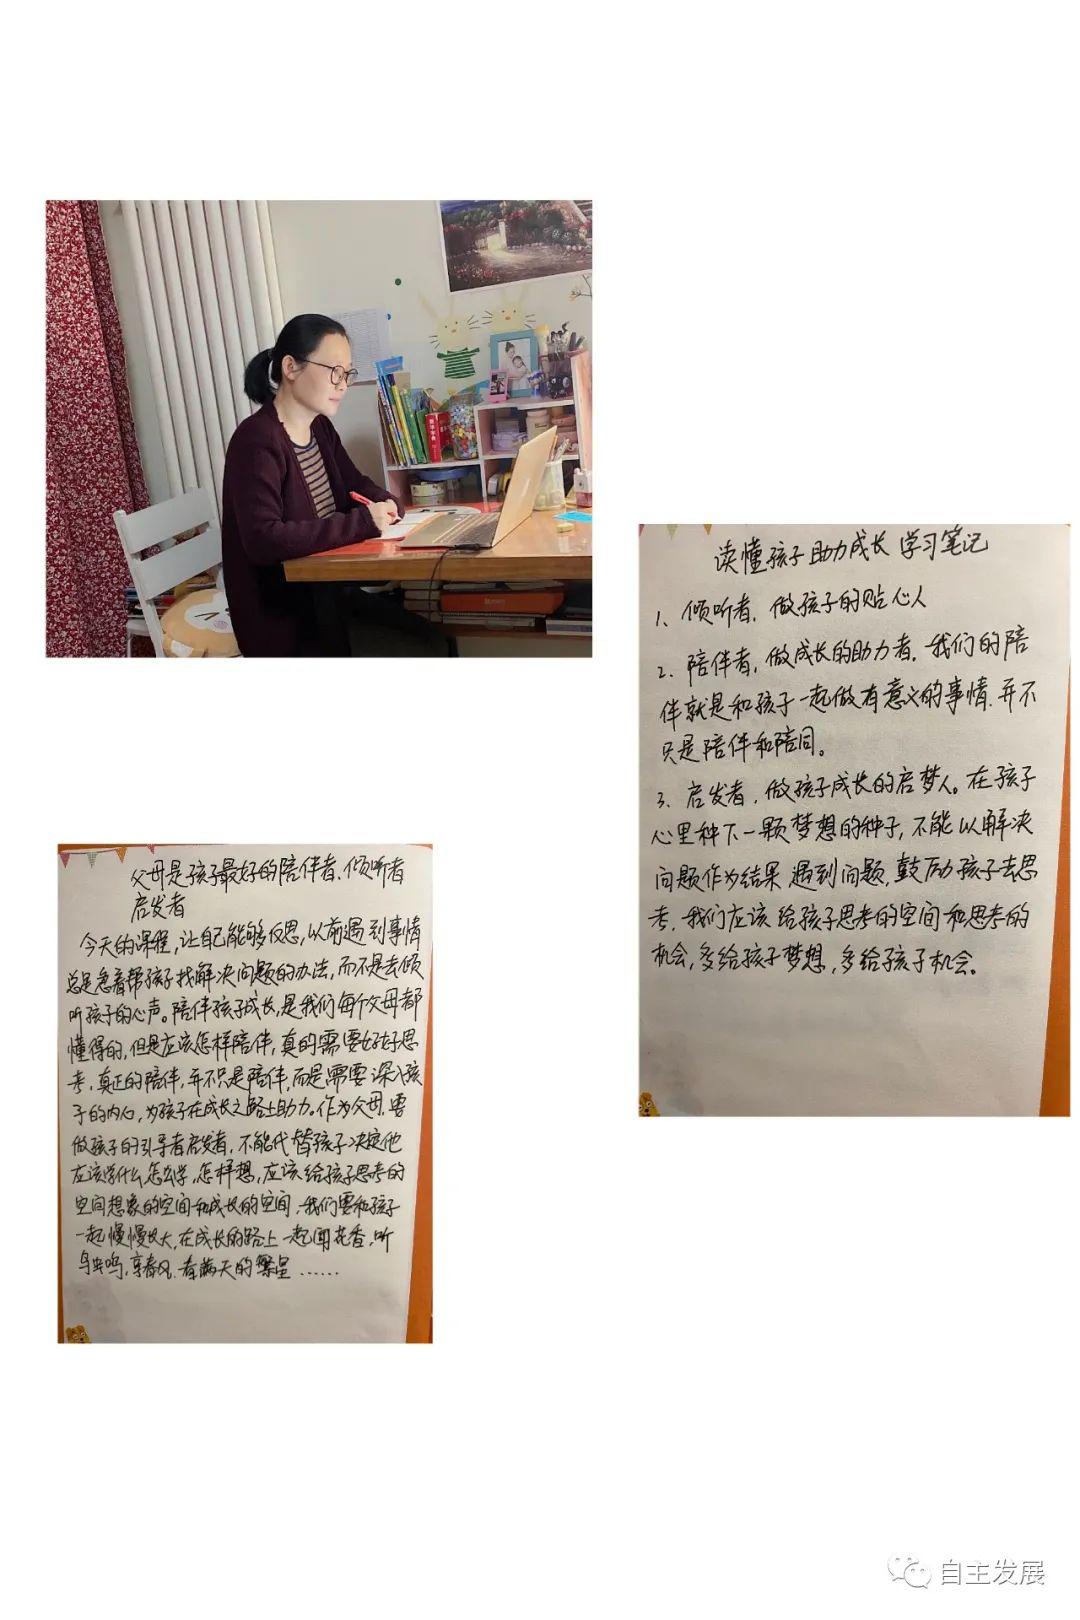 读懂孩子 助力成长 学习笔记
1、倾听者，做孩子的贴心人
2、陪伴者，做成长的助力者，我们的陪
伴就是和孩子一起做有意义的事情，并不
只是陪伴和陪同。
3、启发者，做孩子成长的启梦人。在孩子
心里种下一颗梦想的种子，不能以解决
问题作为结果，遇到问题，鼓励孩子去思
考，我们应该给孩子思考的空间和思考的
机会，多给孩子梦想，多给孩子机会。
父母是孩子最好的陪伴者、倾听者
启发者
今天的课程，让自己能够反思，以前遇到事情
总是急着帮孩子找解决问题的办法，而不是去倾
听孩子的心声。陪伴孩子成长，是我们每个父母都
懂得的，但是应该怎样陪伴，真的需要好好思
考，真正的陪伴，并不只是陪伴，而是需要深入孩
子的内心，为孩子在成长之路上助力。作为父母，要
做孩子的引导者启发者，不能代替孩子决定他
应该学什么怎么学，怎样想，应该给孩子思考的
空间想象的空间和成长的空间，我们要和孩子
一起慢慢长大，在成长的路上一起闻花香，听
鸟虫鸣，享春风，看满天的繁星……
自主发展